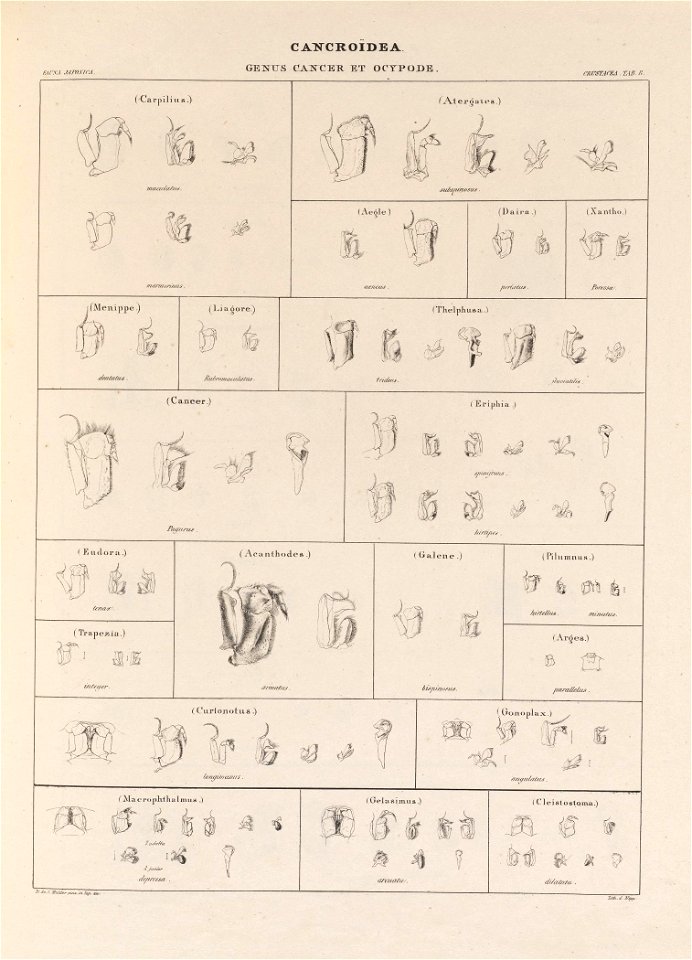 CANCROÏDEA.
GENUS CANCER ET OCYPODE.
FAUNA JAPONICA.
CRUSTACEA. TAB. B.
(Carpilius.)
maculatus.
marmarinus.
(Atergates.)
subspinosus.
(Aegle)
aeneus.
(Daira.)
perlatus.
(Xantho.)
Poressa.
(Menippe.)
dentatus.
(Liagore.)
Rubromaculatus.
(Thelphusa.)
fluviatilis.
(Cancer.)
Pagurus.
(Eriphia.)
spinifrons.
hirtipes.
(Eudora.)
tenax.
(Trapezia.)
integer.
(Acanthodes.)
armatus.
(Galene.)
bispinosus.
(Pilumnus.)
hirtellus. minutus.
(Arges.)
parallelus.
(Curtonotus.)
longimanus.
(Gonoplax.)
angulatus.
(Macrophthalmus.)
depressa.
(Gelasimus.)
arcuata.
(Cleistostoma.)
dilatata.